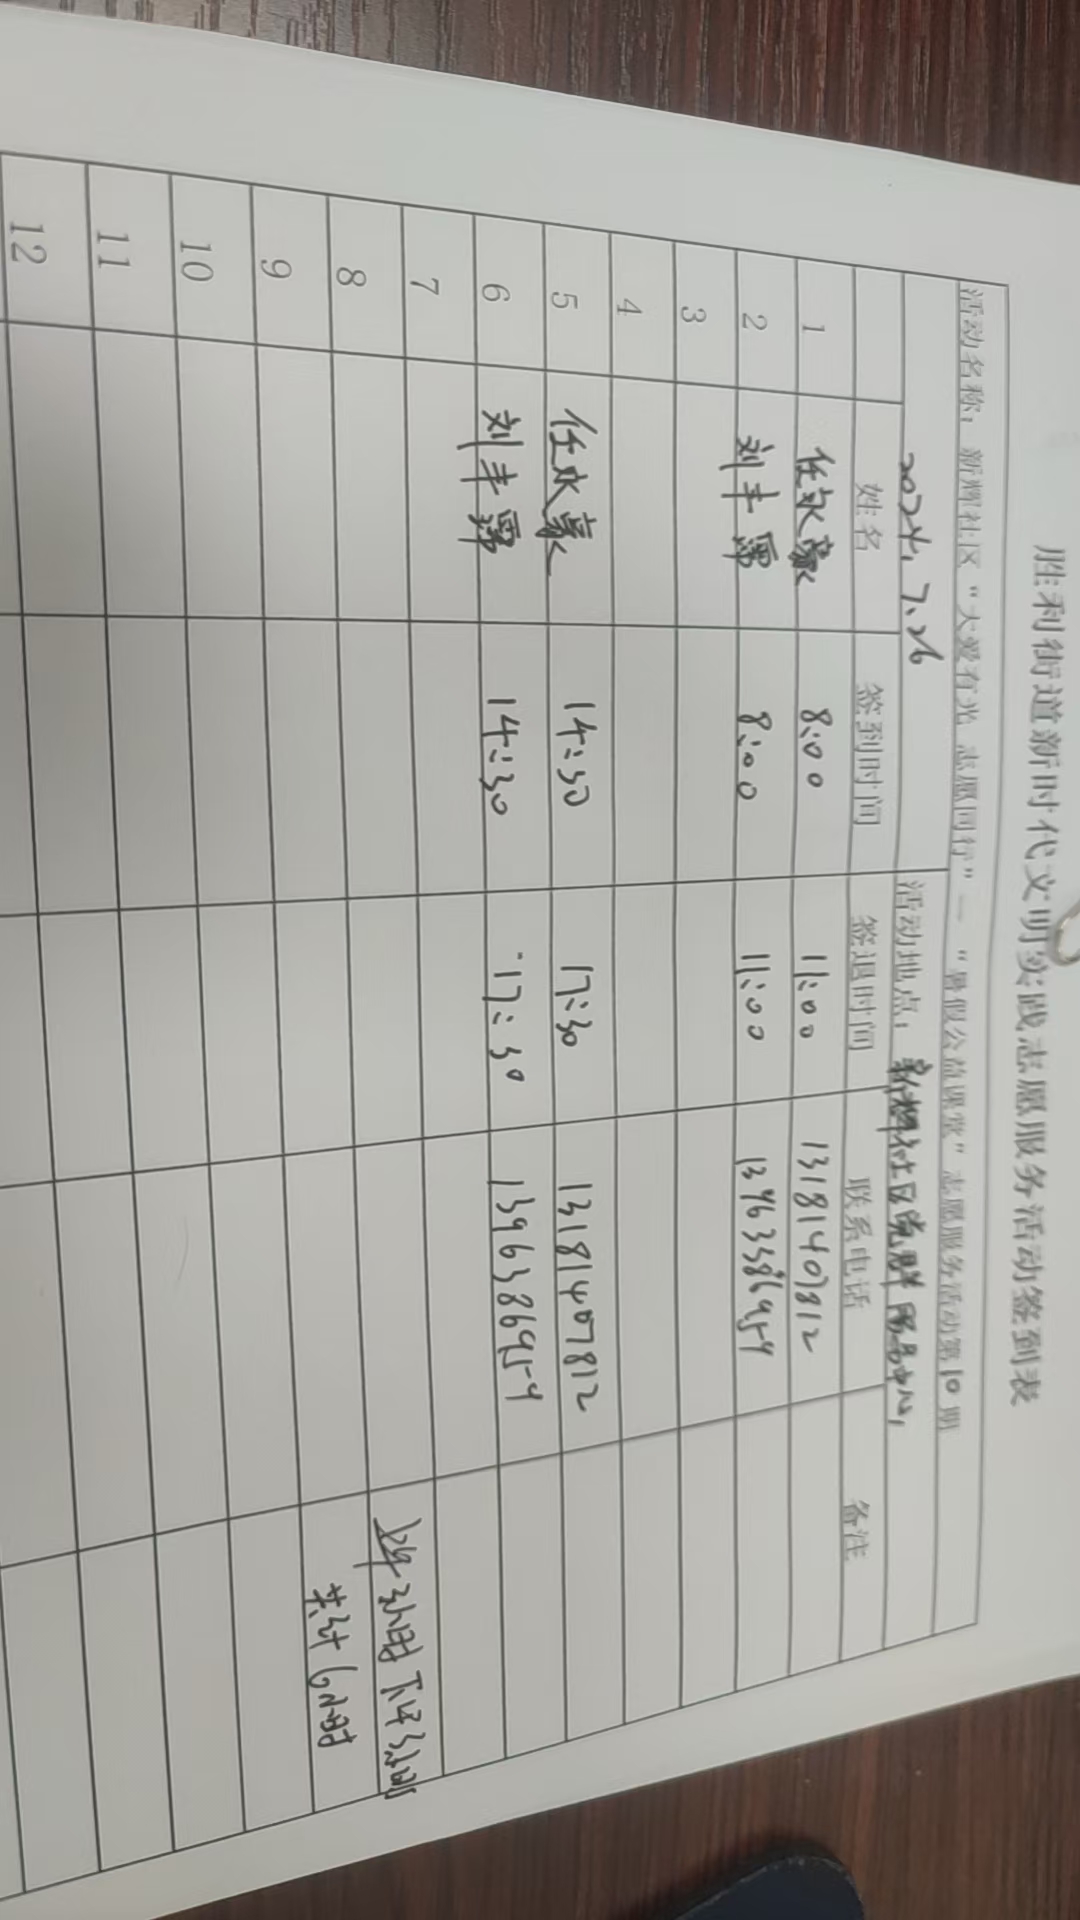 胜利街道新时代文明实践志愿服务活动签到表
活动名称：新辉社区“大爱有光 志愿同行”—“暑假公益课堂”志愿服务活动第10期
2024.7.26 活动地点：新辉社区党群服务中心
姓名 签到时间 签退时间 联系电话 备注
1 任永豪 8:00 11:00 13181407812
2 刘丰霈 8:00 11:00
3
4
5 任永豪 14:30 17:30 13181407812
6 刘丰霈 14:30 17:30 13963869454
7
8 上午3小时 下午3小时
9 共计6小时
10
11
12